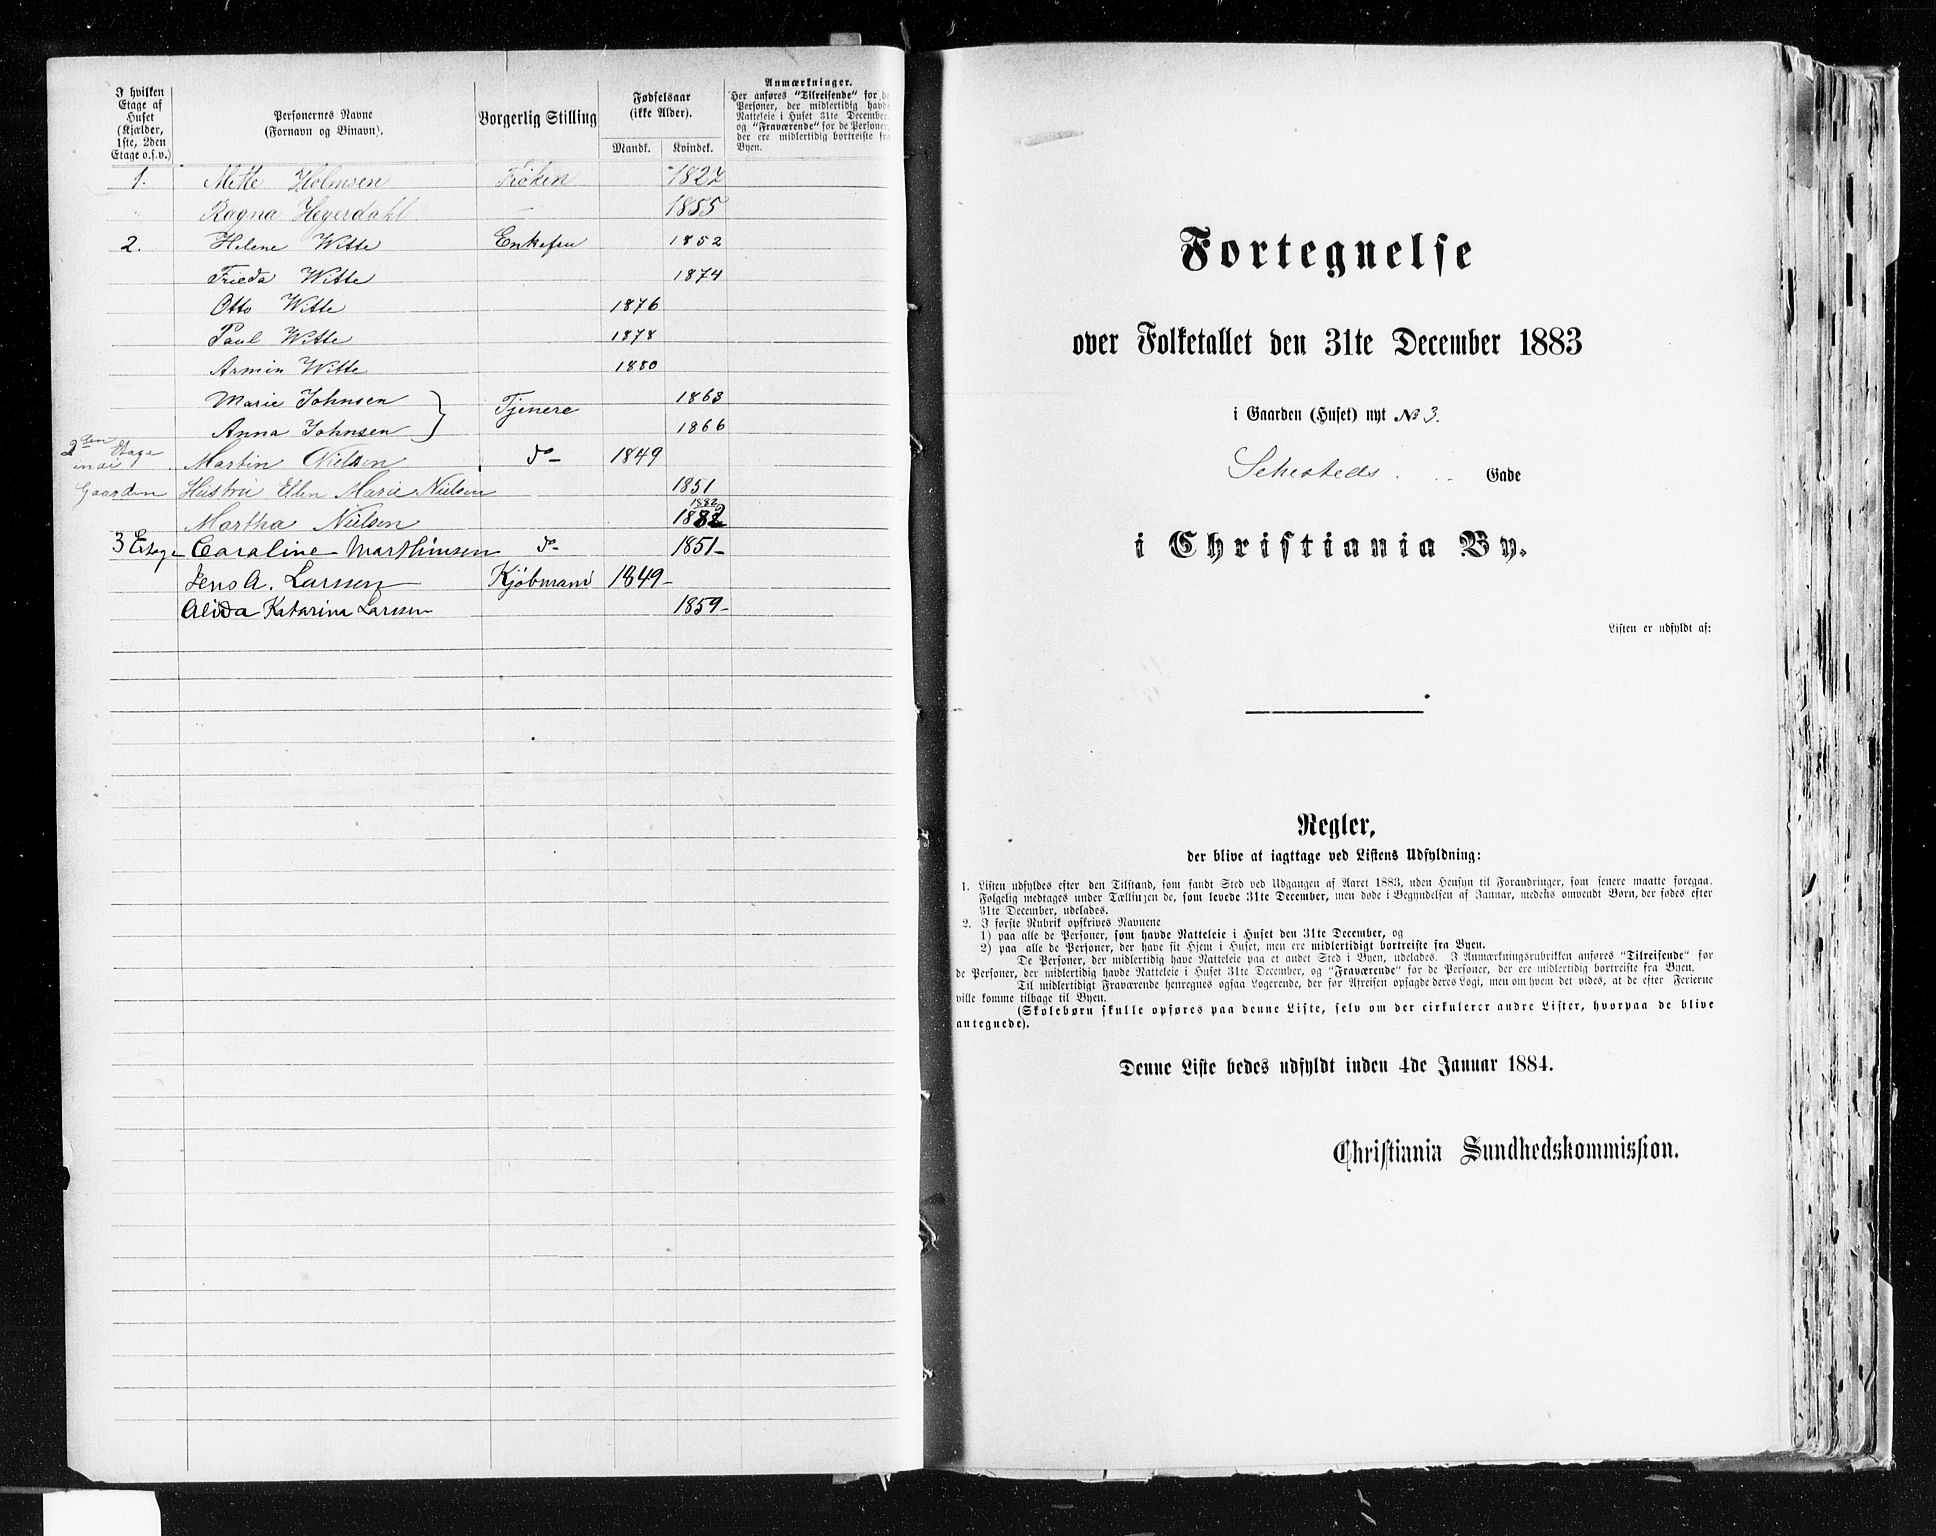 I hvilken
Etage af
Huset
(Kjælder,
1ste, 2den
Etage o.s.v.)
Personernes Navne
(Fornavn og Binavn).
Borgerlig Stilling
Fødselsaar
(ikke Alder).
Mandk. Kvindek.
Anmærkninger.
Her anføres "Tilreisende" for de
Personer, der midlertidig havde
Natteleie i Huset 31te December,
og "Fraværende" for de Personer,
der ere midlertidig bortreiste fra
Byen.
1. Mette Holmsen Frøken 1827
Ragna Heyerdahl — 1855
2. Helene Witte Enkefru 1852
Frieda Witte 1874
Otto Witte 1876
Paul Witte 1878
Armin Witte 1880
Marie Johnsen } Tjenere 1863
Anna Johnsen 1866
2den Etage
Martin Nielsen do 1849
Gaarden Hustru Ellen Marie Nielsen 1851
1882
Martha Nielsen 1882
3 Etage Caroline Marthinsen do 1851-
Jens A. Larssen Kjøbmand 1849-
Alida Katarina Larssen 1859-
Fortegnelse
over Folketallet den 31te December 1883
i Gaarden (Huset) nyt No 3.
Sehesteds Gade
i Christiania By.
Listen er udfyldt af:
Regler,
der blive at iagttage ved Listens Udfyldning:
1. Listen udfyldes efter den Tilstand, som fandt Sted ved Udgangen af Aaret 1883, uden Hensyn til Forandringer, som senere maatte foregaa.
Følgelig medtages under Tællingen de, som levede 31te December, men døde i Begyndelsen af Januar, medens omvendt Børn, der fødes efter
31te December, udelades.
2. I første Rubrik opskrives Navnene
1) paa alle de Personer, som havde Natteleie i Huset den 31te December, og
2) paa alle de Personer, der have sit Hjem i Huset, men ere midlertidigt bortreiste fra Byen.
De Personer, der midlertidig have Natteleie paa et andet Sted i Byen, udelades. I Anmærkningsrubrikken anføres "Tilreisende" for
de Personer, der midlertidig havde Natteleie i Huset 31te December, og "Fraværende" for de Personer, der ere midlertidig bortreiste fra Byen.
Til midlertidigt Fraværende henregnes ogsaa Logerende, der før Afreisen opsagde deres Logi, men om hvem det vides, at de efter Ferierne
ville komme tilbage til Byen.
(Skolebørn skulle opføres paa denne Liste, selv om der cirkulerer andre Lister, hvorpaa de blive
antegnede).
Denne Liste bedes udfyldt inden 4de Januar 1884.
Christiania Sundhedskommission.